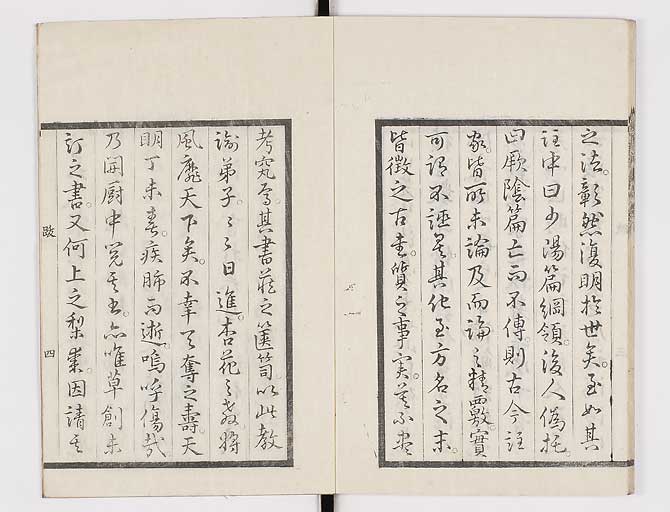 之法。彰然復明於世矣。至如其
註中曰少陽篇綱領後人偽托。
曰厥陰篇亡而不傳。則古今註
家。皆所未論及。而論之精覈。實
可謂不誣矣。其他至方名之末。
皆徵之古書。質之事實。莫不盡
考究焉。其書藏之篋笥。以此教
諭弟子。弟子日進。杏花之教。將
風靡天下矣。不幸天奪之壽。天
明丁未春。疾肺而逝。嗚呼傷哉。
乃開厨中。見其書。亦唯草創未
訂之書。又何上之梨棗。因請其
跋 四